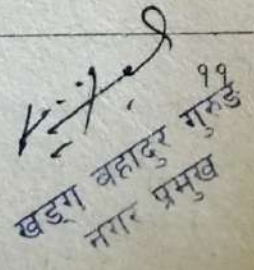 ११
खड्ग वहादुर गुरुङ
नगर प्रमुख